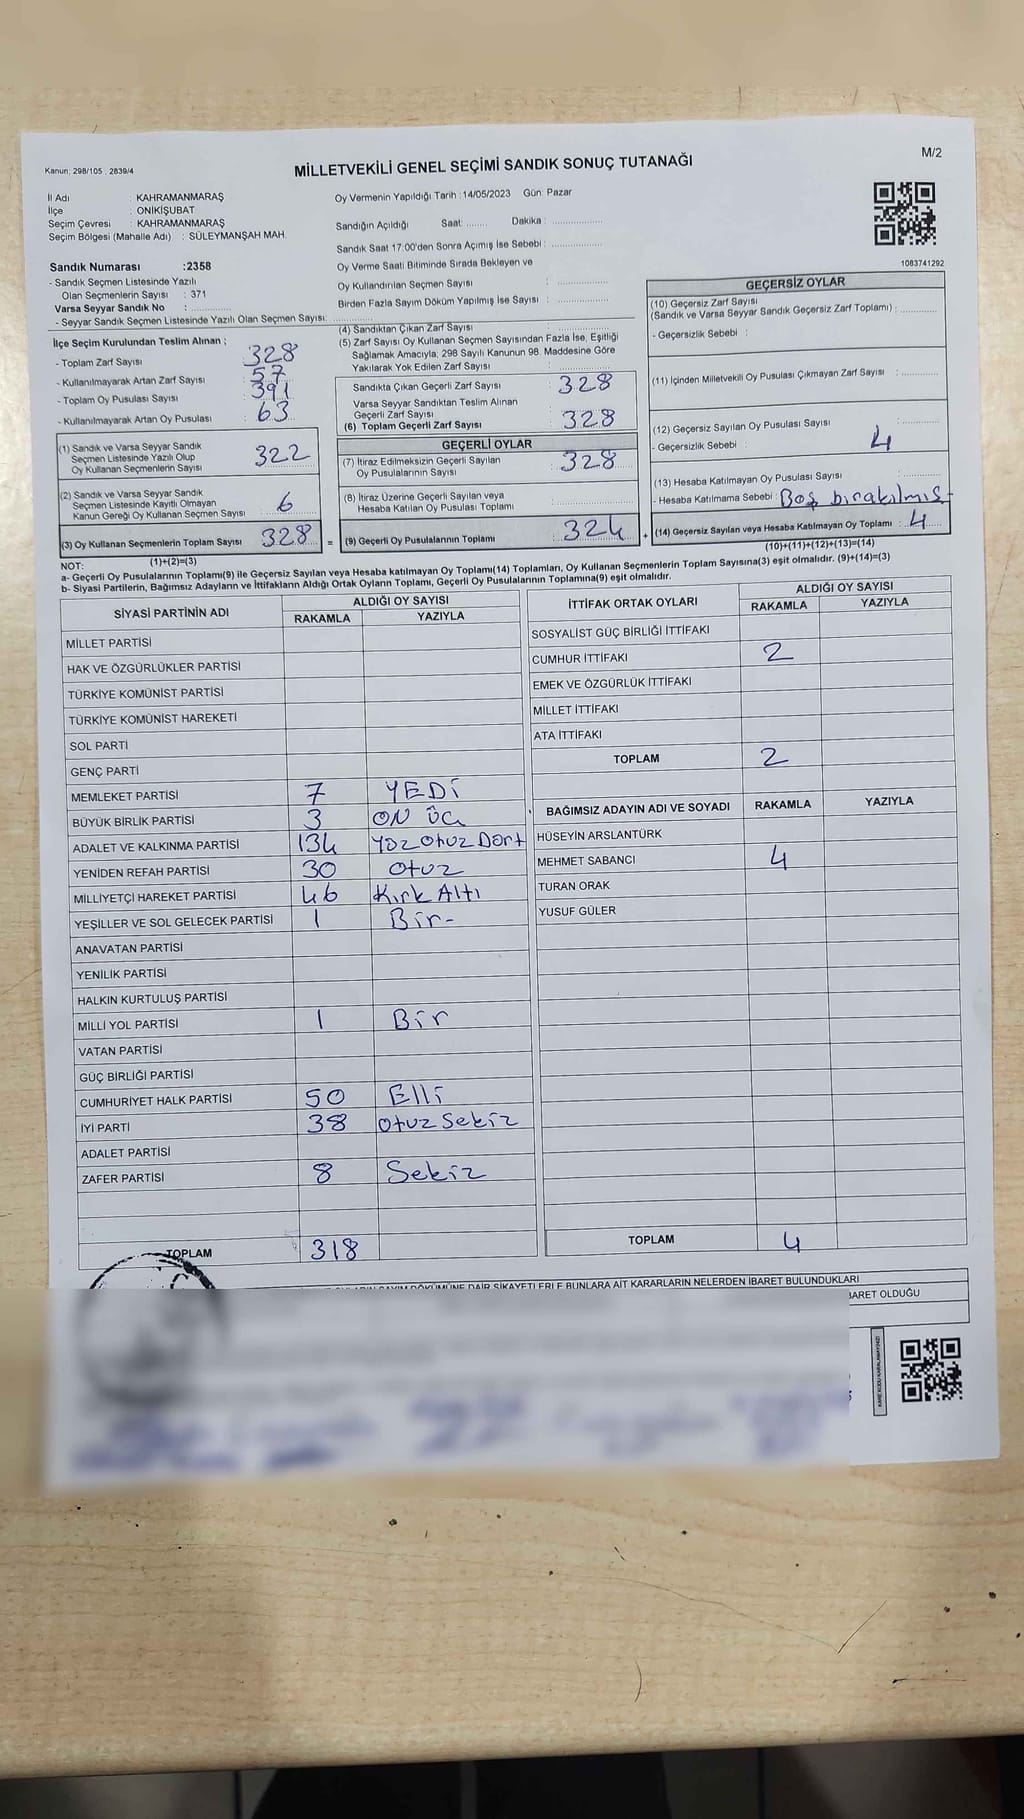 Kanun: 298/105 , 2839/4
MİLLETVEKİLİ GENEL SEÇİMİ SANDIK SONUÇ TUTANAĞI
M/2
İl Adı : KAHRAMANMARAŞ
İlçe : ONİKİŞUBAT
Seçim Çevresi : KAHRAMANMARAŞ
Seçim Bölgesi (Mahalle Adı) : SÜLEYMANŞAH MAH.
Oy Vermenin Yapıldığı Tarih :14/05/2023 Gün: Pazar
Sandığın Açıldığı Saat: ........ Dakika : ....................
Sandık Saat 17:00'den Sonra Açımış İse Sebebi : ....................
Oy Verme Saati Bitiminde Sırada Bekleyen ve
Oy Kullandırılan Seçmen Sayısı : ....................
Birden Fazla Sayım Döküm Yapılmış İse Sayısı : ....................
1083741292
Sandık Numarası :2358
- Sandık Seçmen Listesinde Yazılı
Olan Seçmenlerin Sayısı : 371
Varsa Seyyar Sandık No : ....................
- Seyyar Sandık Seçmen Listesinde Yazılı Olan Seçmen Sayısı: ....................
İlçe Seçim Kurulundan Teslim Alınan ;
- Toplam Zarf Sayısı 328
- Kullanılmayarak Artan Zarf Sayısı 57
- Toplam Oy Pusulası Sayısı 391
- Kullanılmayarak Artan Oy Pusulası 63
(1) Sandık ve Varsa Seyyar Sandık
Seçmen Listesinde Yazılı Olup
Oy Kullanan Seçmenlerin Sayısı 322
(2) Sandık ve Varsa Seyyar Sandık
Seçmen Listesinde Kayıtlı Olmayan
Kanun Gereği Oy Kullanan Seçmen Sayısı 6
(3) Oy Kullanan Seçmenlerin Toplam Sayısı 328 =
(1)+(2)=(3)
(4) Sandıktan Çıkan Zarf Sayısı : ....................
(5) Zarf Sayısı Oy Kullanan Seçmen Sayısından Fazla İse, Eşitliği
Sağlamak Amacıyla, 298 Sayılı Kanunun 98. Maddesine Göre
Yakılarak Yok Edilen Zarf Sayısı : ....................
Sandıkta Çıkan Geçerli Zarf Sayısı : 328
Varsa Seyyar Sandıktan Teslim Alınan
Geçerli Zarf Sayısı
(6) Toplam Geçerli Zarf Sayısı : 328
GEÇERLİ OYLAR
(7) İtiraz Edilmeksizin Geçerli Sayılan
Oy Pusulalarının Sayısı : 328
(8) İtiraz Üzerine Geçerli Sayılan veya
Hesaba Katılan Oy Pusulası Toplamı : ....................
(9) Geçerli Oy Pusulalarının Toplamı : 324 +
GEÇERSİZ OYLAR
(10) Geçersiz Zarf Sayısı
(Sandık ve Varsa Seyyar Sandık Geçersiz Zarf Toplamı) : ............
- Geçersizlik Sebebi :
(11) İçinden Milletvekili Oy Pusulası Çıkmayan Zarf Sayısı : ............
(12) Geçersiz Sayılan Oy Pusulası Sayısı : ............
- Geçersizlik Sebebi : 4
(13) Hesaba Katılmayan Oy Pusulası Sayısı : ............
- Hesaba Katılmama Sebebi : Boş bırakılmış
(14) Geçersiz Sayılan veya Hesaba Katılmayan Oy Toplamı : 4
(10)+(11)+(12)+(13)=(14)
NOT:
a- Geçerli Oy Pusulalarının Toplamı(9) ile Geçersiz Sayılan veya Hesaba Katılmayan Oy Toplamı(14) Toplamları, Oy Kullanan Seçmenlerin Toplam Sayısına(3) eşit olmalıdır. (9)+(14)=(3)
b- Siyasi Partilerin, Bağımsız Adayların ve İttifakların Aldığı Ortak Oyların Toplamı, Geçerli Oy Pusulalarının Toplamına(9) eşit olmalıdır.
SİYASİ PARTİNİN ADI ALDIĞI OY SAYISI
RAKAMLA YAZIYLA
MİLLET PARTİSİ
HAK VE ÖZGÜRLÜKLER PARTİSİ
TÜRKİYE KOMÜNİST PARTİSİ
TÜRKİYE KOMÜNİST HAREKETİ
SOL PARTİ
GENÇ PARTİ
MEMLEKET PARTİSİ 7 YEDİ
BÜYÜK BİRLİK PARTİSİ 3 ON ÜÇ
ADALET VE KALKINMA PARTİSİ 134 Yüz Otuz Dört
YENİDEN REFAH PARTİSİ 30 Otuz
MİLLİYETÇİ HAREKET PARTİSİ 46 Kırk Altı
YEŞİLLER VE SOL GELECEK PARTİSİ 1 Bir-
ANAVATAN PARTİSİ
YENİLİK PARTİSİ
HALKIN KURTULUŞ PARTİSİ
MİLLİ YOL PARTİSİ 1 Bir
VATAN PARTİSİ
GÜÇ BİRLİĞİ PARTİSİ
CUMHURİYET HALK PARTİSİ 50 Elli
İYİ PARTİ 38 Otuz Sekiz
ADALET PARTİSİ
ZAFER PARTİSİ 8 Sekiz
TOPLAM 318
İTTİFAK ORTAK OYLARI ALDIĞI OY SAYISI
RAKAMLA YAZIYLA
SOSYALİST GÜÇ BİRLİĞİ İTTİFAKI
CUMHUR İTTİFAKI 2
EMEK VE ÖZGÜRLÜK İTTİFAKI
MİLLET İTTİFAKI
ATA İTTİFAKI
TOPLAM 2
BAĞIMSIZ ADAYIN ADI VE SOYADI RAKAMLA YAZIYLA
HÜSEYİN ARSLANTÜRK
MEHMET SABANCI 4
TURAN ORAK
YUSUF GÜLER
TOPLAM 4
SAYIM DÖKÜMÜNE DAİR ŞİKAYETLERLE BUNLARA AİT KARARLARIN NELERDEN İBARET BULUNDUKLARI
İBARET OLDUĞU